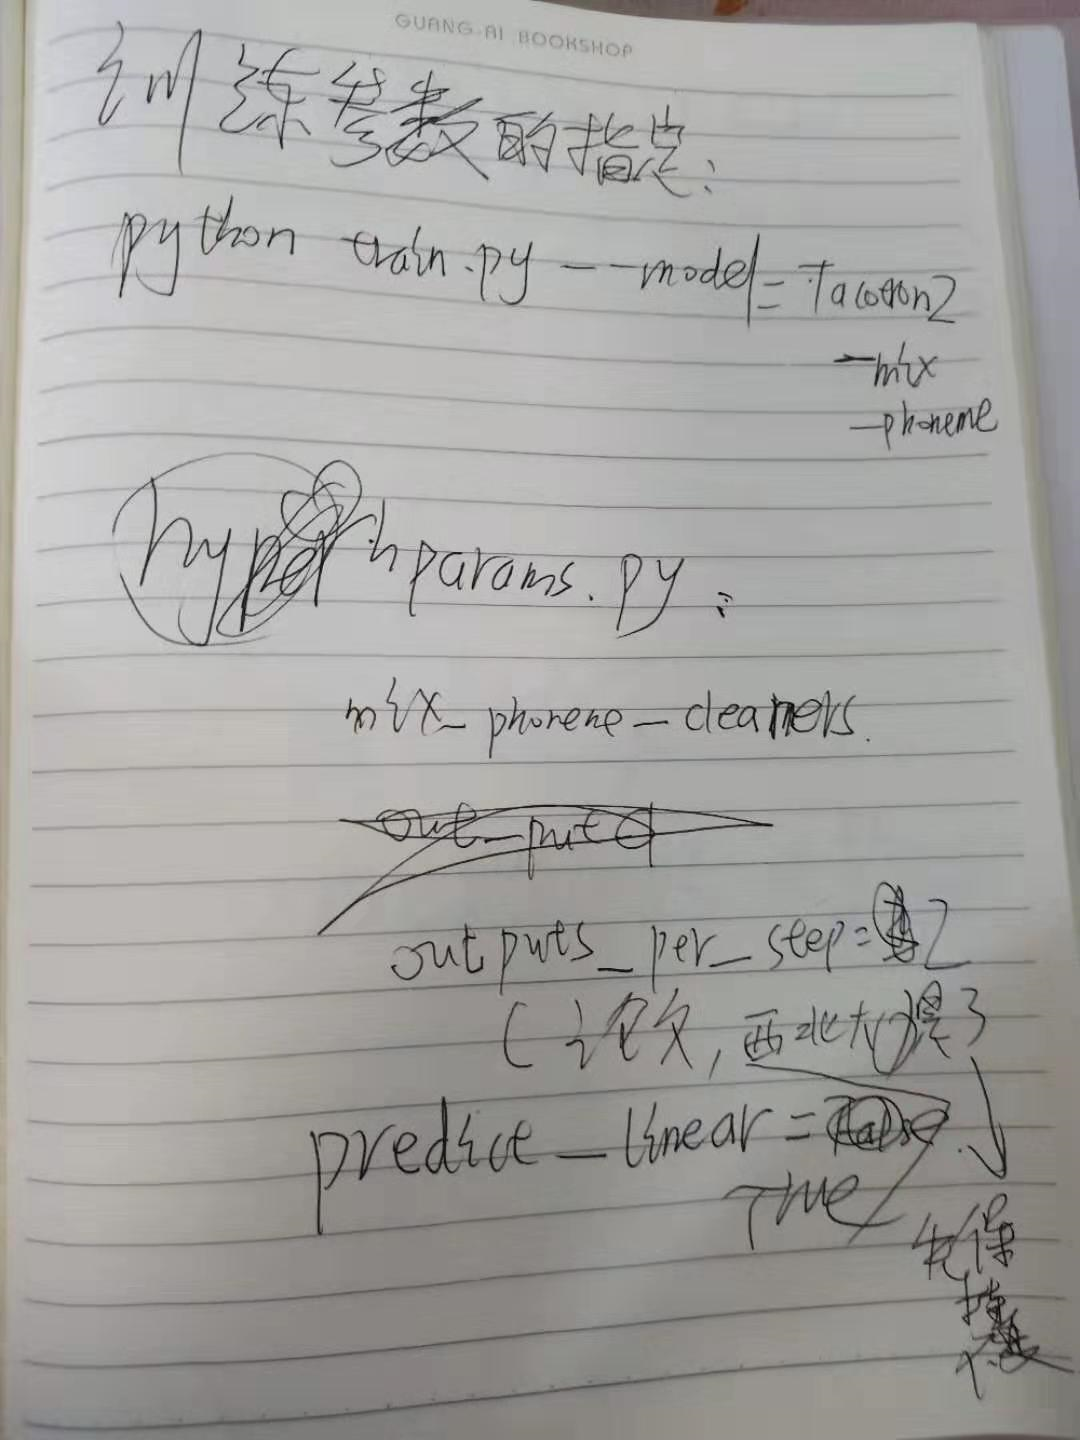 GUANG AI BOOKSHOP
训练参数的指定:
python train.py --model=Tacotron2
-mix
-phoneme
hyper hparams.py:
mix_phoneme_cleaners.
out_put
outputs_per_step=2
(论文,西北大
predict_linear=False
True
先保